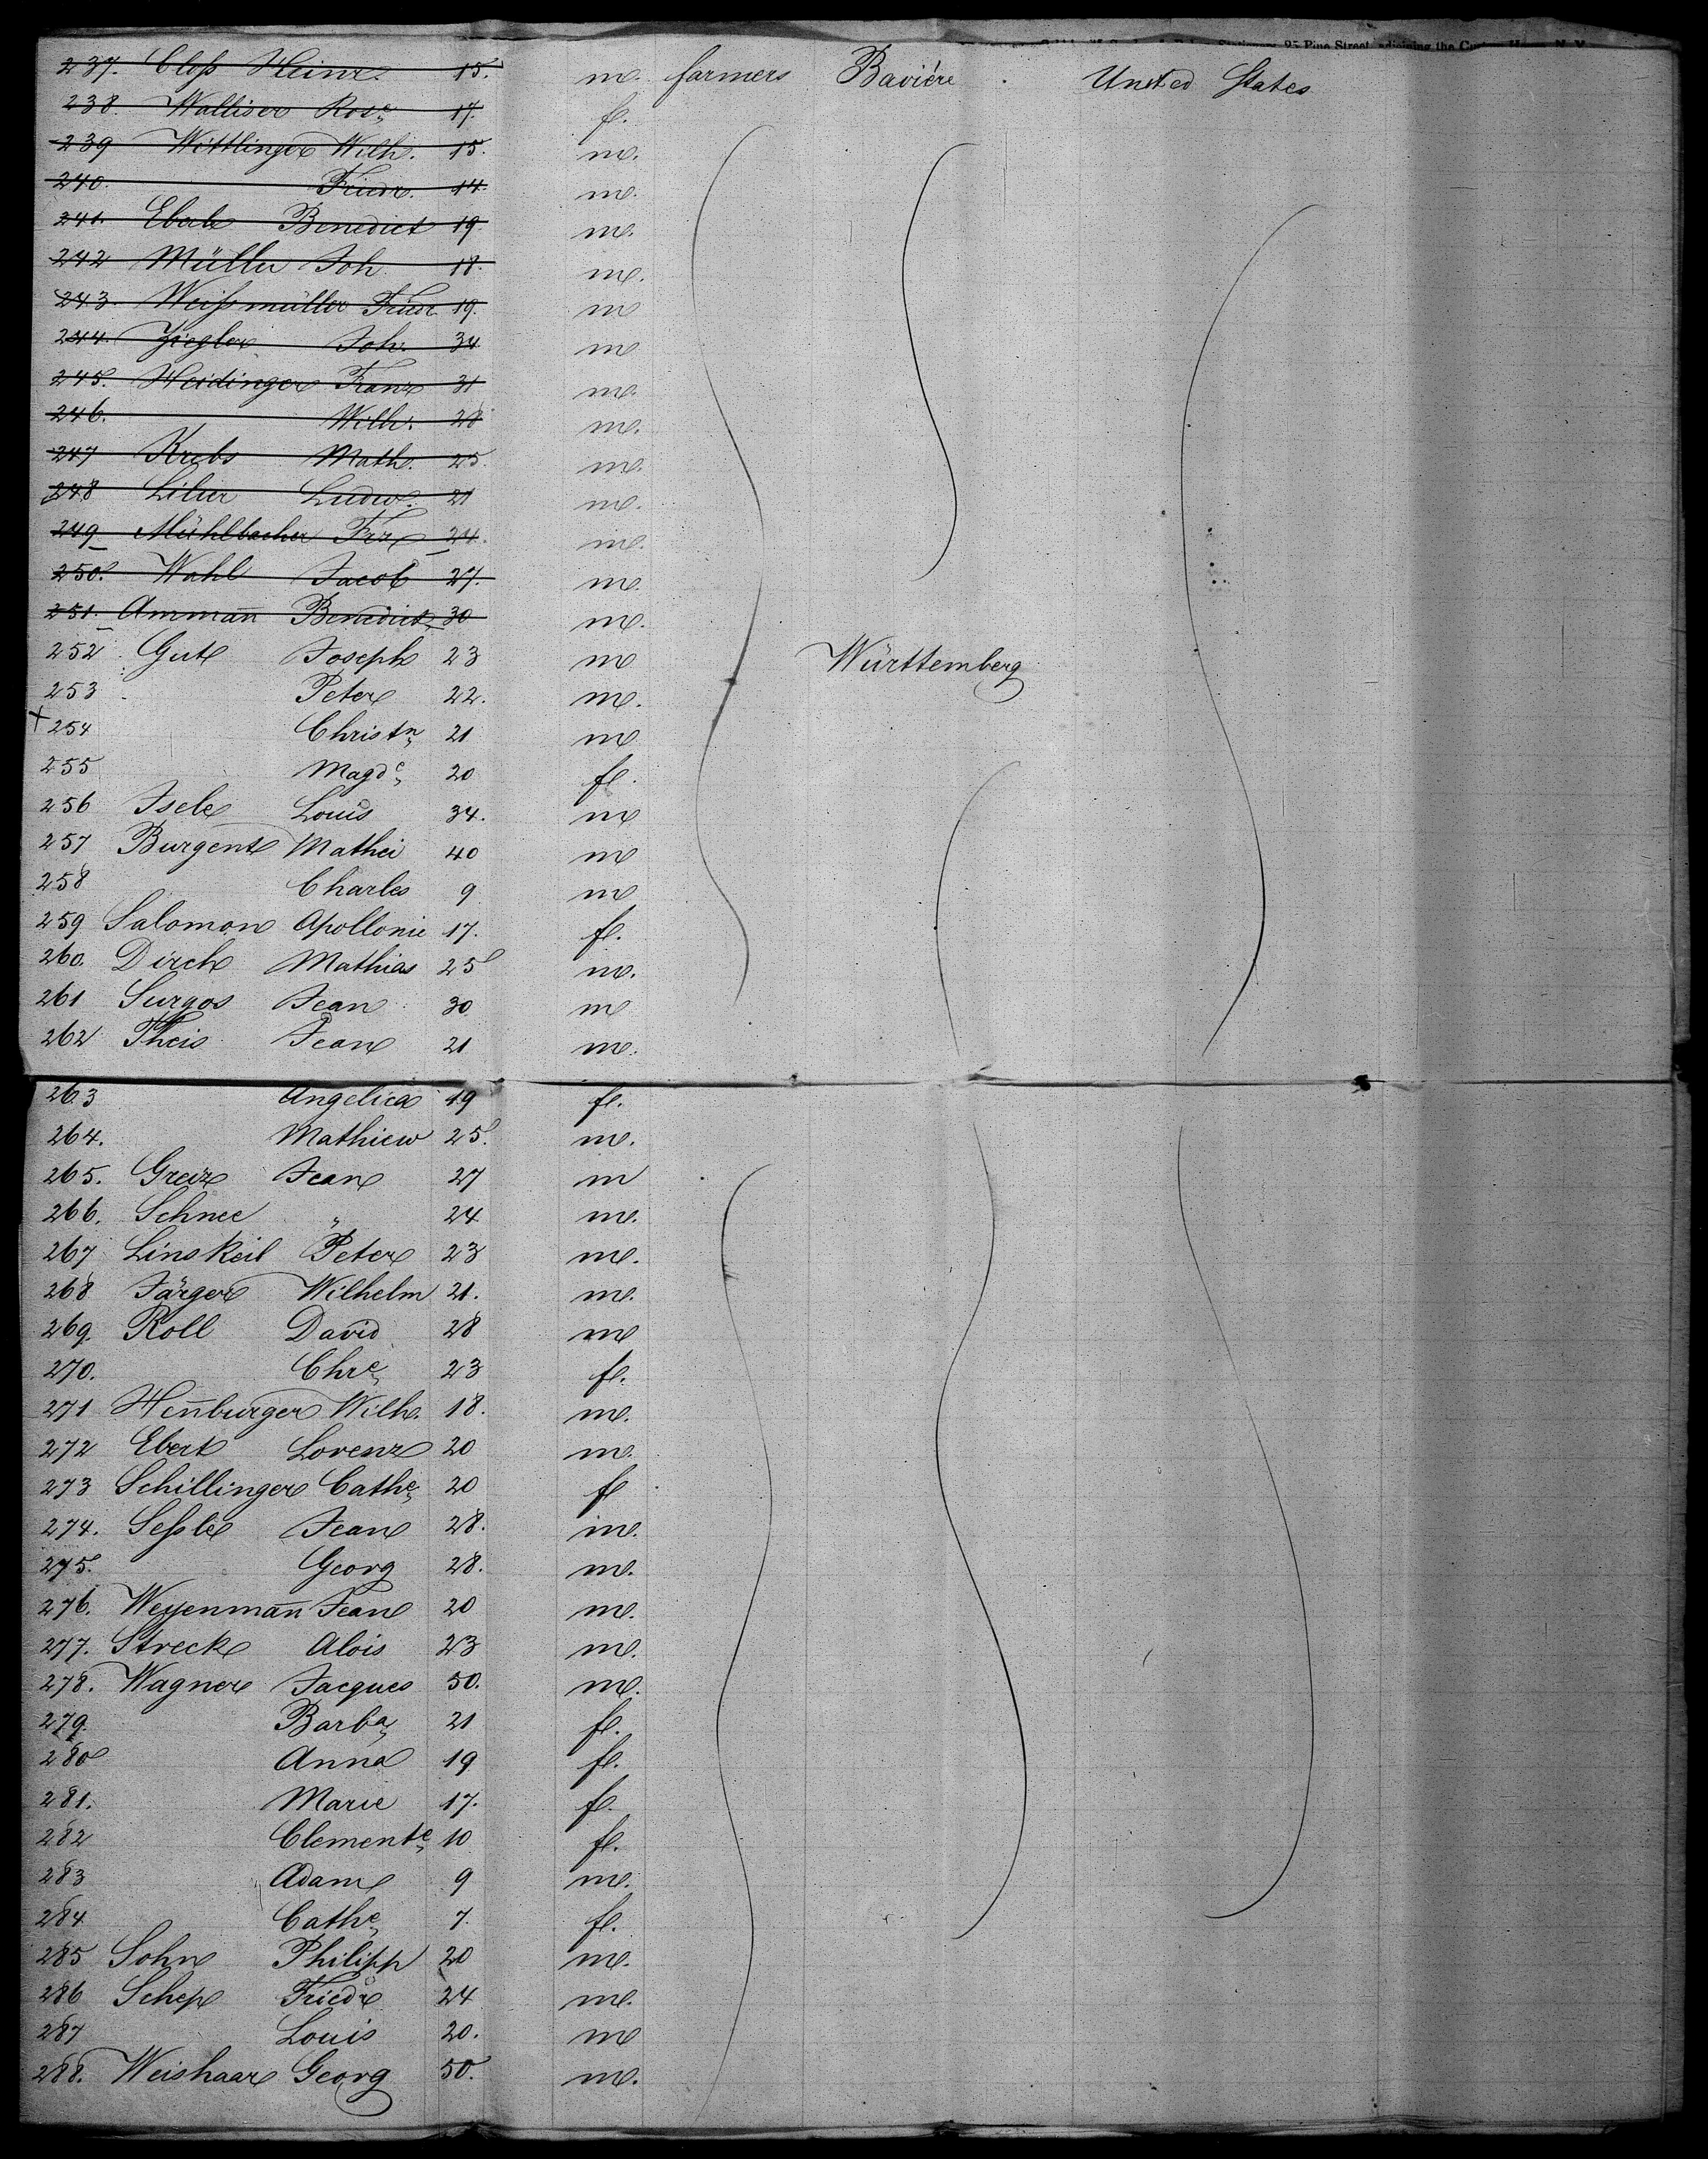 95 Pine Street, adjoining the Custom House, N. Y.
237. Cloß Heinr. 15. m. farmers Baviére United States
238. Walliser Rose 17. fl.
239 Wittlinger Wilh. 15. m.
240. Friedr. 14. m.
241. Eberle Benedict 19. m.
242 Müller Joh. 18. m.
243. Weißmüller Friedr. 19. m
244. Ziegler Joh. 34 m
245. Heidinger Franz 31 m.
246. Wilh. 28 m.
247 Krebs Math. 25. m.
248 Ludw. 21 m.
249 Mühlbacher Frz 24. m.
250. Wahl Jacob 27. m.
251. Ammañ Benedict 30 m.
252 Gut Joseph 23 m Württemberg
253 Peter 22. m.
+ 254 Christn 21 m
255 Magde 20 fl.
256 Isele Louis 34. m
257 Burgent Mathei 40 m
258 Charles 9 m
259 Salomon Apollonie 17. fl.
260. Dirch Mathias 25 m.
261 Surgos Jean 30 m
262 Theis Jean 21 m.
263 Angelica 19 fl.
264. Mathiew 25. m.
265. Greiz Jean 27 m
266. Schnee " 24 m.
267 Linskeil Peter 23 m.
268 Järger Wilhelm 21. m.
269. Roll David 28 m
270. Chre 23 fl.
271 Heñburger Wilh. 18. m.
272 Ebert Lorenz 20 m.
273 Schillinger Cathe 20 fl
274. Seßle Jean 28. m.
275. Georg 28. m.
276. Weyenmañ Jean 20 m.
277. Streck Alois 23 m.
278. Wagner Jacques 50. m.
279. Barba 21 fl.
280 Anna 19 fl.
281. Marie 17. fl.
282 Clemente 10 fl.
283 Adam 9 m.
284 Cathe 7. fl.
285 Sohn Philipp 20 m.
286 Schep Friedr 24 m.
287 Louis 20. m
288. Weishaar Georg 50. m.